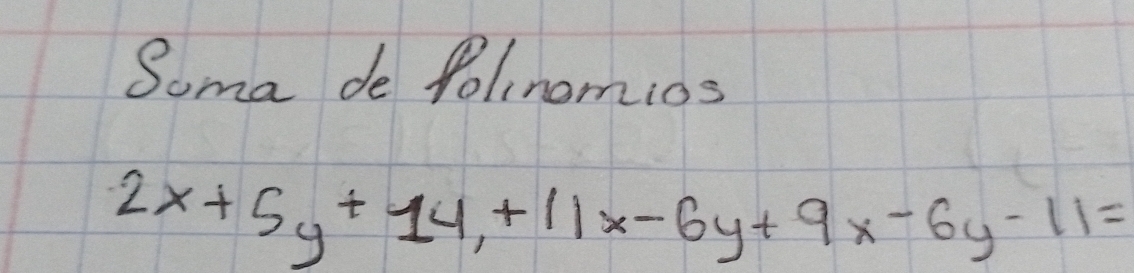 Suma de Polinomios
2x+5y+14,+11x-6y+9x-6y-11=